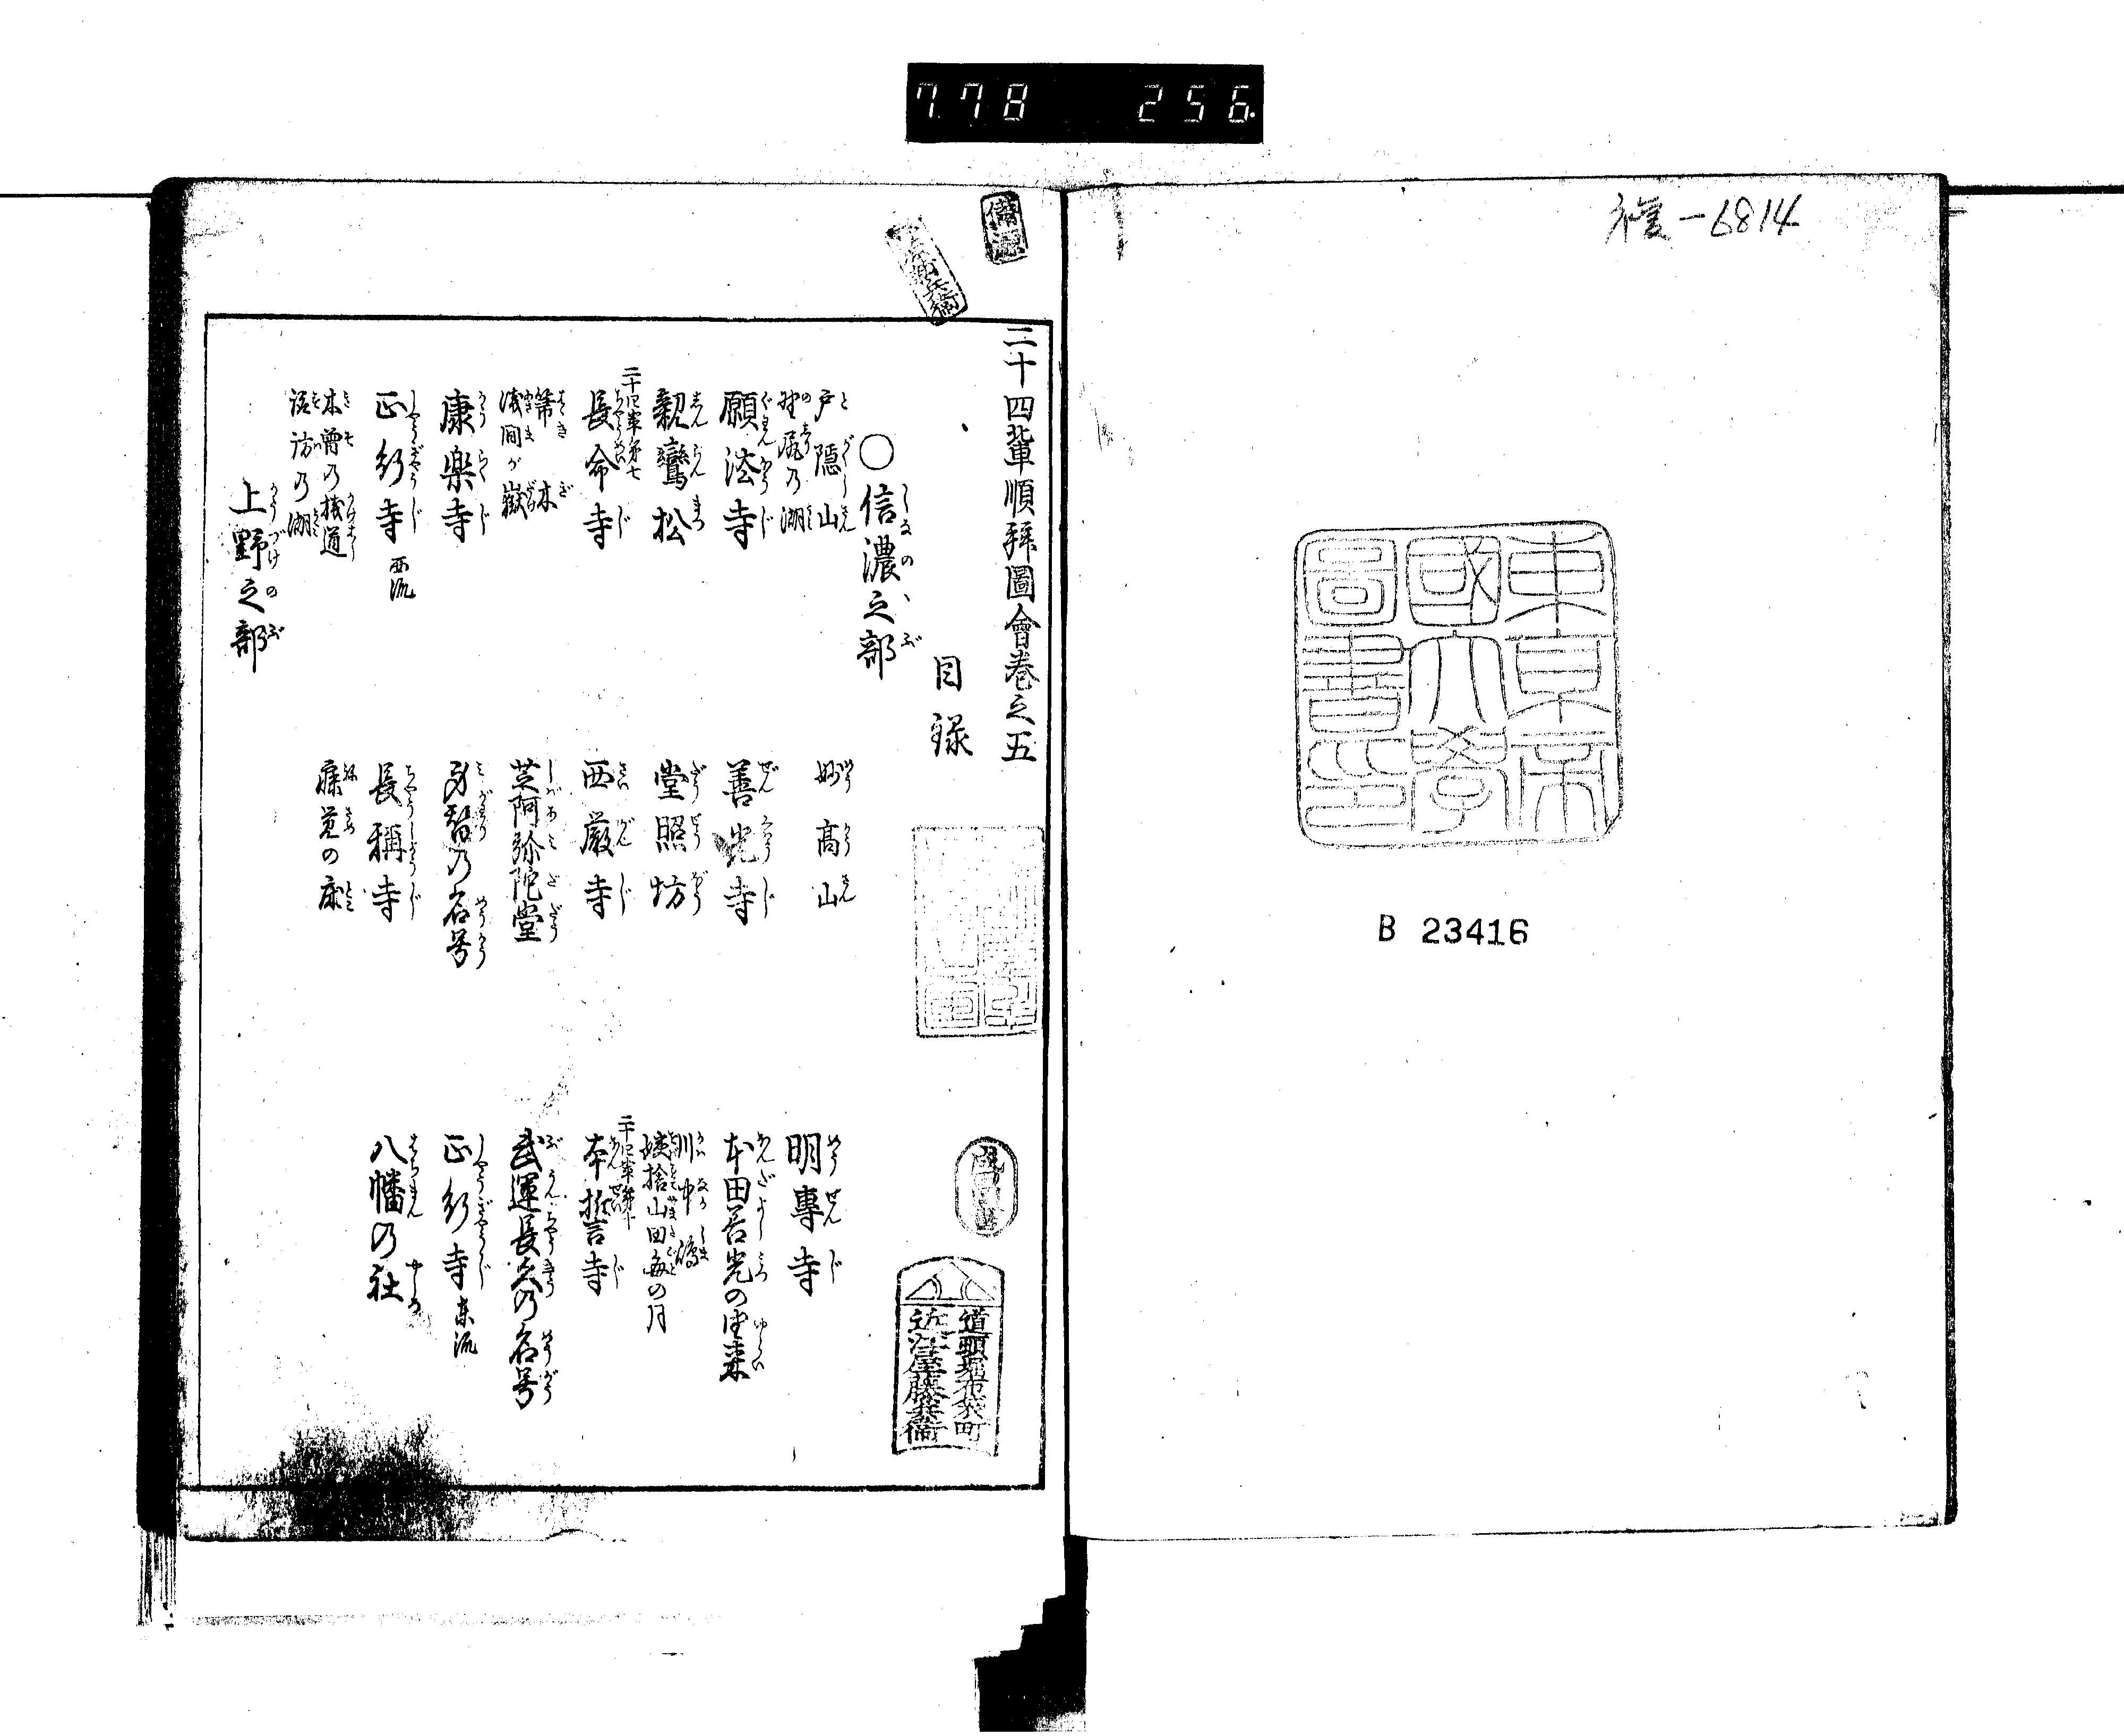 7.78 256.
B 23416
東京帝
國大學
圖書之印
二十四輩順拜圖會卷之五
目録
〇信濃之部
戸隠山
妙高山
明專寺
野尻の湖
願法寺
善光寺
本田善光の由来
親鸞松
堂照坊
川中嶋
姨捨山田毎の月
二十四輩第七
長命寺
西厳寺
二十四輩第十
本誓寺
箒木
浅間が嶽
芝阿弥陀堂
武運長久の名号
康楽寺
身替の名号
正行寺 東流
正行寺 西流
長稱寺
八幡の社
木曽の棧道
諏訪の湖
寐覚の床
上野之部
道頓堀布袋町
近江屋藤兵衛